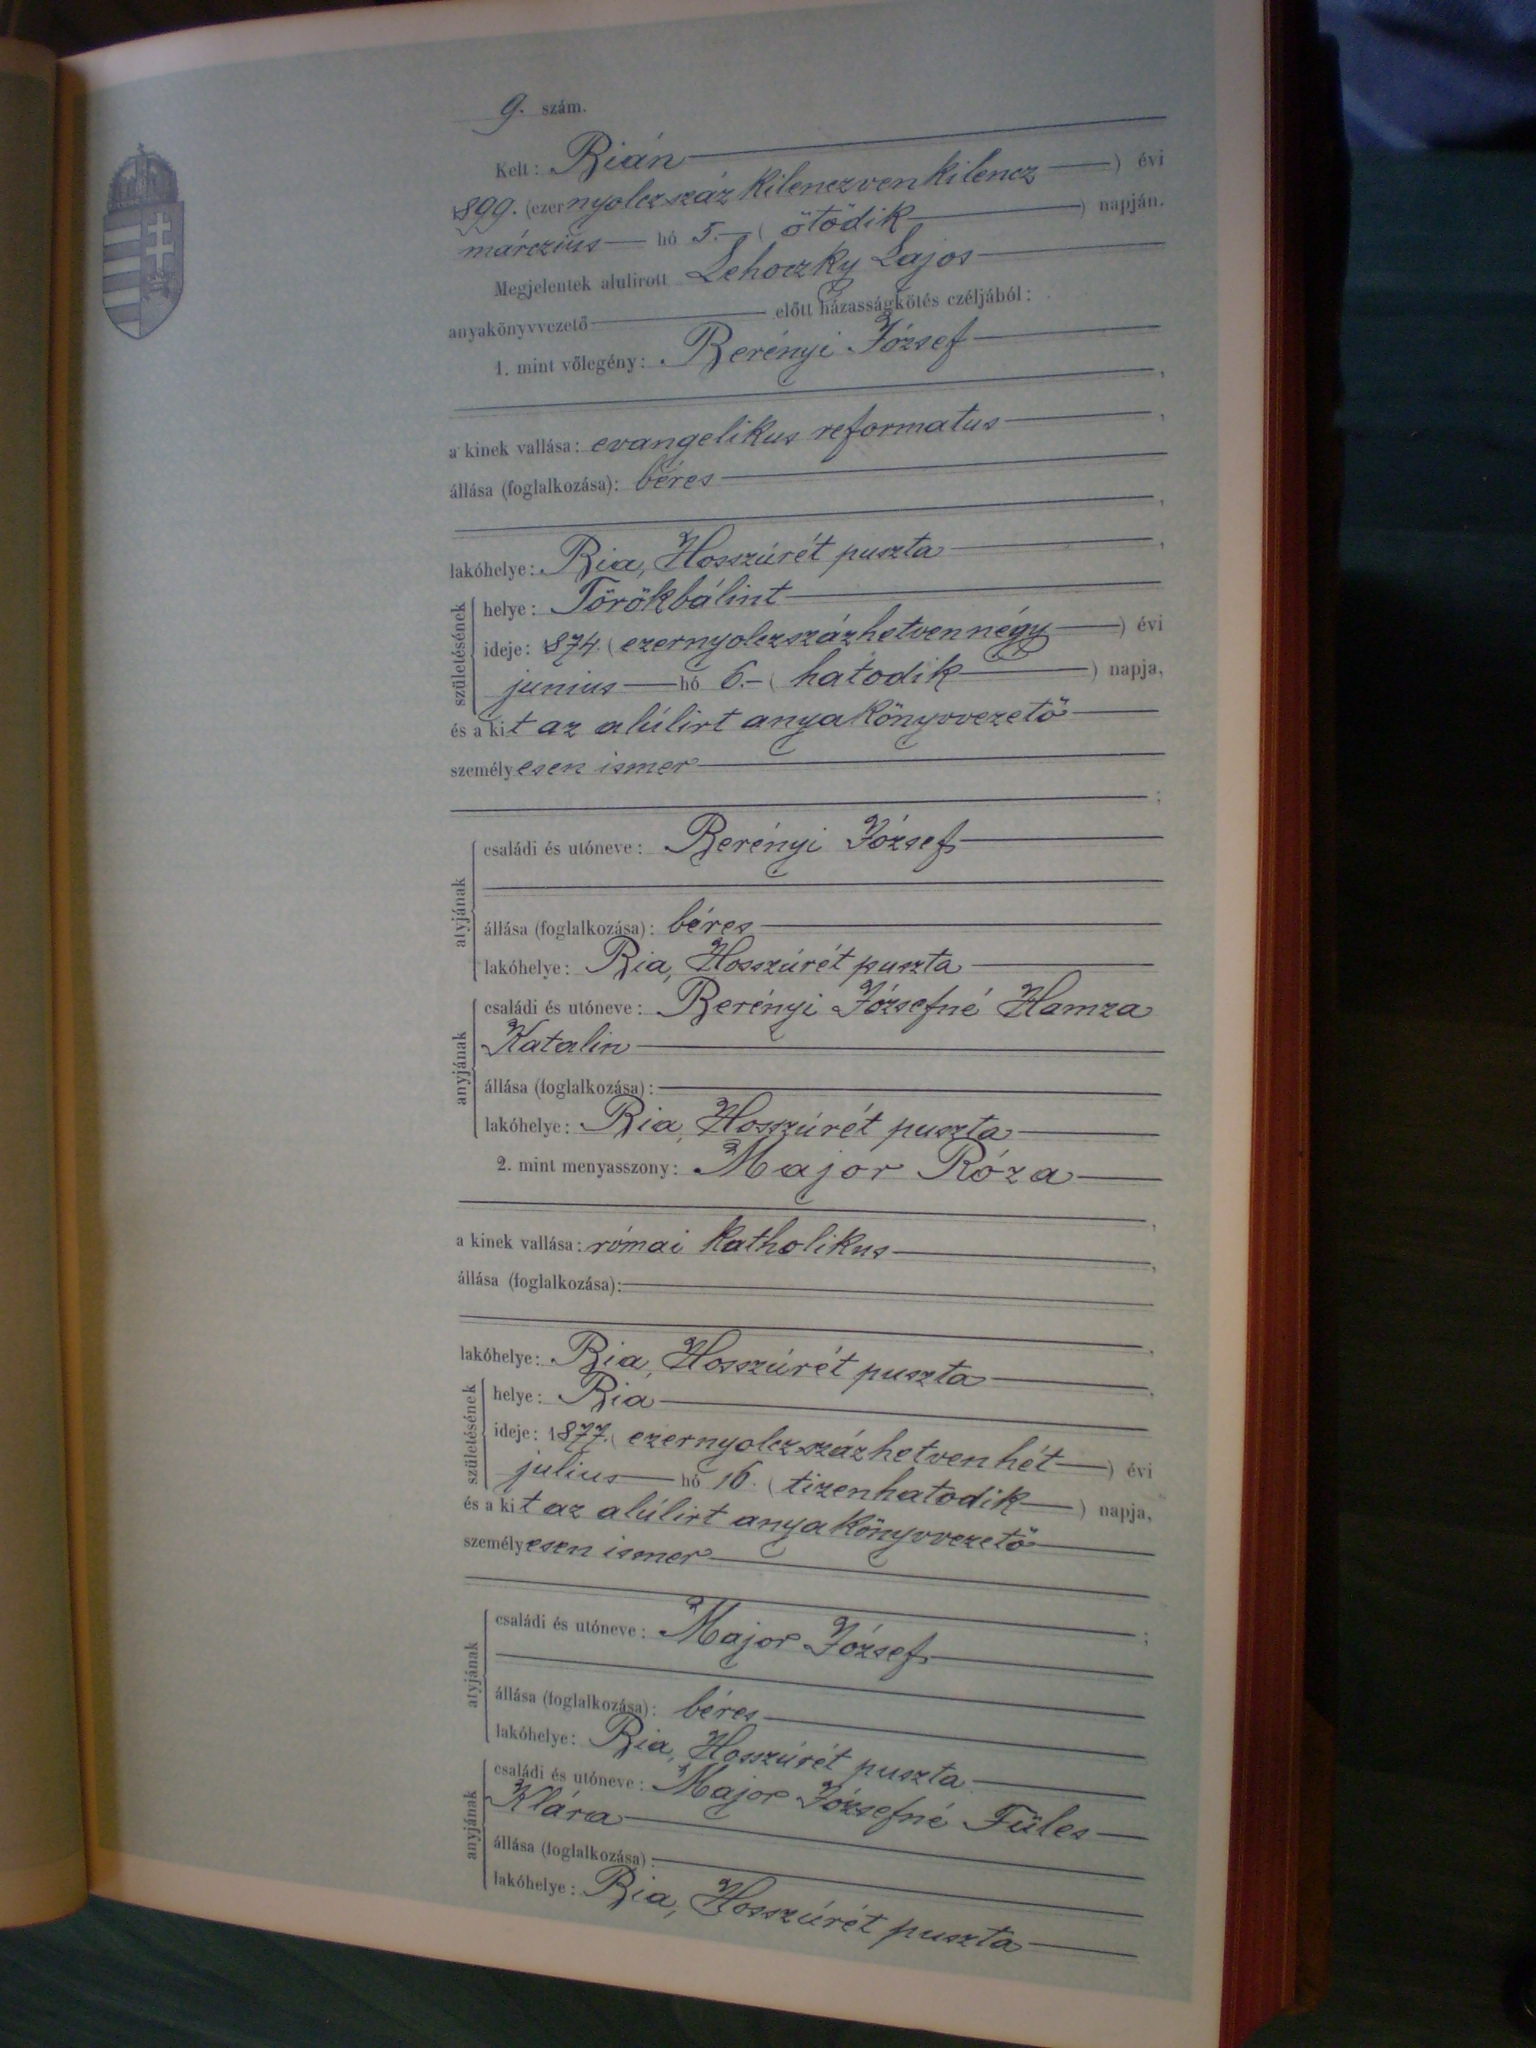 9. szám.
Kelt: Bián
1899. (ezernyolczszáz kilenczvenkilencz ) évi
márczius hó 5. ( ötödik ) napján.
Megjelentek alulirott Lehoczky Lajos
anyakönyvvezető előtt házasságkötés czéljából:
1. mint vőlegény: Berényi József ,
a kinek vallása: evangelikus reformatus ,
állása (foglalkozása): béres ,
lakóhelye: Bia, Hosszúrét puszta ,
születésének
helye: Törökbálint
ideje: 1874. (ezernyolczszázhetvennégy ) évi
junius hó 6. ( hatodik ) napja,
és a kit az alúlirt anyakönyvvezető
személyesen ismer ;
atyjának
családi és utóneve: Berényi József
állása (foglalkozása): béres
lakóhelye: Bia, Hosszúrét puszta
anyjának
családi és utóneve: Berényi Józsefné Hamza
Katalin
állása (foglalkozása):
lakóhelye: Bia, Hosszúrét puszta
2. mint menyasszony: Major Róza ,
a kinek vallása: római katholikus ,
állása (foglalkozása): ,
lakóhelye: Bia, Hosszúrét puszta ,
születésének
helye: Bia
ideje: 1877. (ezernyolczszázhetvenhét ) évi
julius hó 16. ( tizenhatodik ) napja,
és a kit az alúlirt anyakönyvvezető
személyesen ismer ;
atyjának
családi és utóneve: Major József
állása (foglalkozása): béres
lakóhelye: Bia, Hosszúrét puszta
anyjának
családi és utóneve: Major Józsefné Füles
Klára
állása (foglalkozása):
lakóhelye: Bia, Hosszúrét puszta